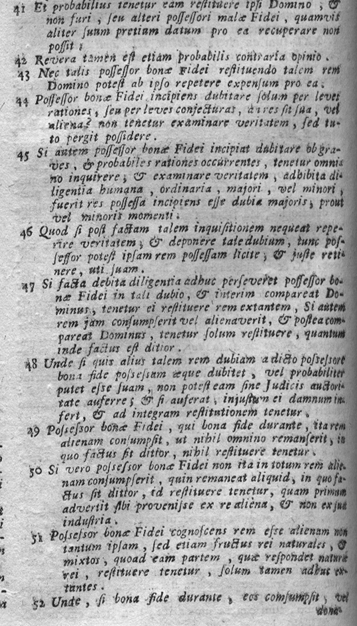 41 Et probabilius tenetur eam restituere ipsi Domino, &
non furi, seu alteri possessori malæ Fidei, quamvis
aliter suum pretium datum pro ea recuperare non
possit;
42 Revera tamen est etiam probabilis contraria opinio.
43 Nec talis possessor bonæ Fidei restituendo talem rem
Domino potest ab ipso repetere expensum pro ea.
44 Possessor bonæ Fidei incipiens dubitare solum per leves
rationes, seu per leves conjecturas, a res sit sua, vel
aliena? non tenetur examinare veritatem, sed tu-
to pergit possidere.
45 Si autem possessor bonæ Fidei incipiat dubitare ob gra-
ves, & probabiles rationes occurrentes, tenetur omni-
no inquirere, & examinare veritatem, adhibita di-
ligentia humana, ordinaria, majori, vel minori,
fuerit res possessa incipiens esse dubia majoris, prout
vel minoris momenti.
46 Quod si post factam talem inquisitionem nequeat repe-
rire veritatem, & deponere tale dubium, tunc pos-
sessor potest ipsam rem possessam licite, & juste reti-
nere, uti suam.
47 Si facta debita diligentia adhuc perseveret possessor bo-
næ Fidei in tali dubio, & interim compareat Do-
minus, tenetur ei restituere rem extantem, Si autem
rem jam consumpserit vel alienaverit, & postea com-
pareat Dominus, tenetur solum restituere, quantum
inde factus est ditior.
48 Unde si quis alius talem rem dubiam a dicto possessore
bona fide possessam æque dubitet, vel probabiliter
putet esse suam, non potest eam sine Judicis auctori-
tate auferre; & si auferat, injustum ei damnum in-
fert, & ad integram restitutionem tenetur.
49 Possessor bonæ Fidei, qui bona fide durante, ita rem
alienam consumpsit, ut nihil omnino remanserit, in
quo factus sit ditior, nihil restituere tenetur.
50 Si vero possessor bonæ Fidei non ita in totum rem alie-
nam consumpserit, quin remaneat aliquid, in quo fa-
ctus sit ditior, id restituere tenetur, quam primum
advertit sibi provenisse ex re aliena, & non ex sua
industria.
51 Possessor bonæ Fidei cognoscens rem esse alienam non
tantum ipsam, sed etiam fructus rei naturales, &
mixtos, quoad eam partem, quæ respondet naturæ
rei, restituere tenetur, solum tamen adhuc ex-
tantes.
52 Unde, si bona fide durante, eos consumpsit, vel